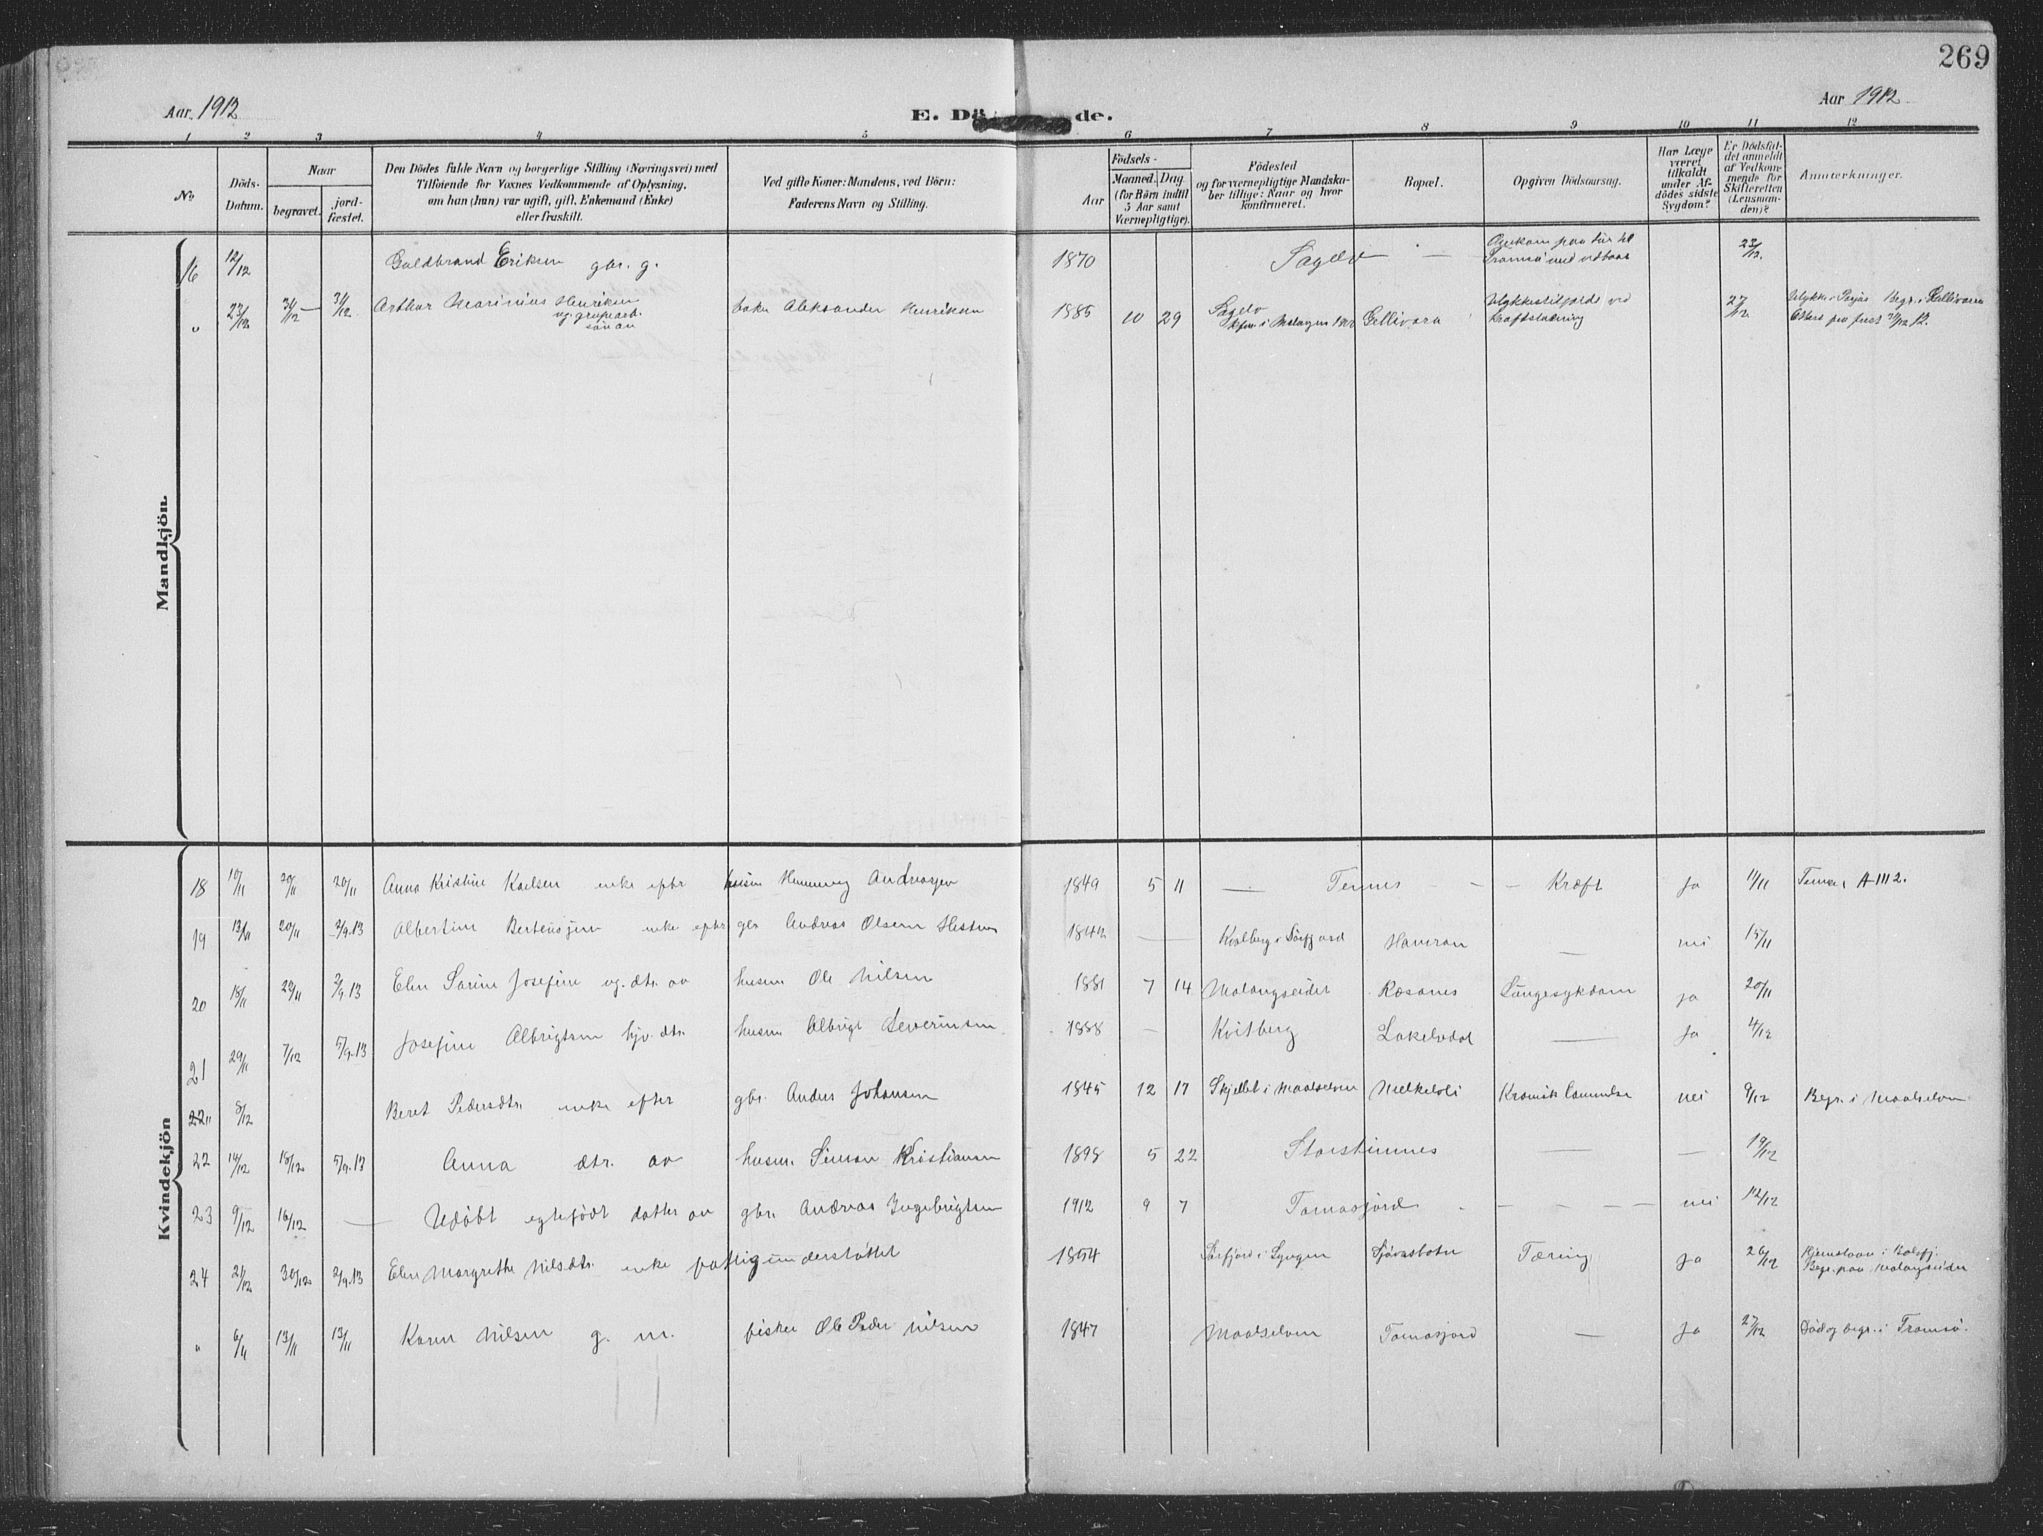 269
Aar 1912 E. Dö de. Aar 1912
1 2 3 4 5 6 7 8 9 10 11 12
No
Döds-Datum.
Naar
begravet.
jord-fæstet.
Den Dödes fulde Navn og borgerlige Stilling (Næringsvei) med
Tilföiende for Voxnes Vedkommende af Oplysning,
om han (hun) var ugift, gift, Enkemand (Enke)
eller fraskilt.
Ved gifte Koner: Mandens, ved Börn:
Faderens Navn og Stilling.
Aar
Födsels-
Maaned. Dag
(for Börn indtil
5 Aar samt
Værnepligtige).
Födested
og for værnepligtige Mandska-
ber tillige: Naar og hvor
konfirmeret.
Bopæl.
Opgiven Dödsaarsag.
Har Læge
været
tilkaldt
under Af-
dödes sidste
Sygdom?
Er Dödsfal-
det anmeldt
af Vedkom-
mende for
Skifteretten
(Lensman-
den)?
Anmærkninger.
Mandkjön.
16 12/12 Guldbrand Eriksen gbr. g. 1870 Sagelv — Omkom paa tur til Tromsö med vedbaat 23/12
" 23/12 31/12 — 31/12 Arthur Marinius Henriksen ug. grubearb. sön av baker Aleksander Henriksen 1885 10 29 Sagelv Gellivara Ulykkestilfælde ved 27/12
Kvindekjön
18 10/11 20/11 20/11 Anna Kristine Karlsen enke efter husm Hemming Andreasen 1849 5 11 — Tennes - - Kræft Ja 11/11
19 13/11 20/11 3/9.13 Albertine Berteusjen enke efter gbr Andreas Olsen 1842 — Kvalberg i Sörfjord Havran — nei 15/11
20 15/11 29/11 2/9.13 Elen Sarine Josefine ug. dtr. av husm Ole Nilsen 1881 7 14 Malangseidet Ræsanes Lungesykdom ja 20/11
21 29/11 7/12 5/9.13 Josefine Albrigtsen hjv. dtr. husm Albrigt Severinsen 1888 — Kvitberg Lakselvdal — Ja 4/12
22 " 8/12 Beret Pedersdtr. enke efter gbr. Anders Johansen 1845 12 17 Skjellet i Maalselven Melkelvli Kronisk nei 9/12 Begr. i Maalselven
22 14/12 18/12 5/9.13 Anna dtr. av husm. Simon Kristiansen 1898 5 22 Storsteinnes — — 19/12
23 9/12 16/12 — Udöbt egtefödt datter av gbr. Andreas Ingebrigtsen 1912 9 7 Tomasjord - - - - nei 12/12
24 21/12 30/12 2/9.13 Elen Margrethe Nilsdtr. enke fattigunderstöttet 1854 Sörfjord i Lyngen Sjövasbotn Tæring ja 26/12 Hjemstavn i Balsfj. Begr. paa Malangseidet
" 6/11 13/11 13/11 Karen Nilsen g. m. fisker Ole Peder Nilsen 1847 Maalselven Tomasjord — Ja 27/12 Död og begr. i Tromsö.